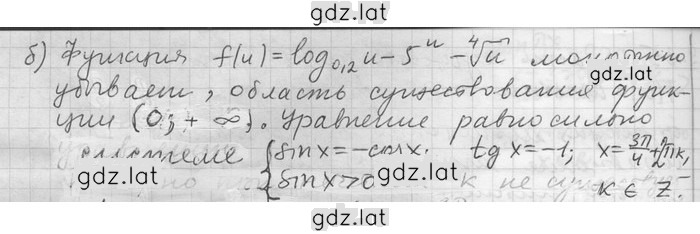 gdz.lat
б) Функция f(u) = log₀,₂ u − 5ᵘ − ⁴√u
gdz.lat
убывает, область существования функ-
ции (0; + ∞). Уравнение равносильно
системе { sin x = −cos x. tg x = −1; x = 3π/4 + 2πk,
sin x > 0 k ∈ Z.
gdz.lat
gdz.lat
gdz.lat